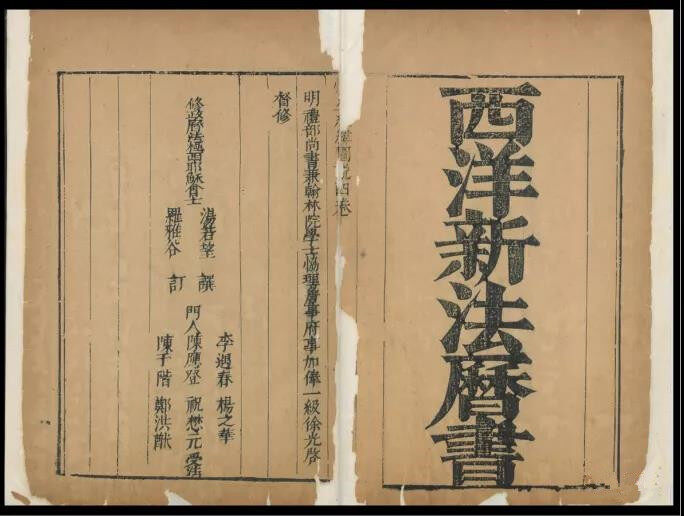 西洋新法曆書
圖說四卷
明禮部尚書兼翰林院學士協理詹事府事加俸一級徐光啓
督修
修政曆法極西耶穌會士
湯若望 撰
羅雅谷 訂
李遇春 楊之華
門人陳應登 祝懋元 受法
陳于階 鄭洪猷